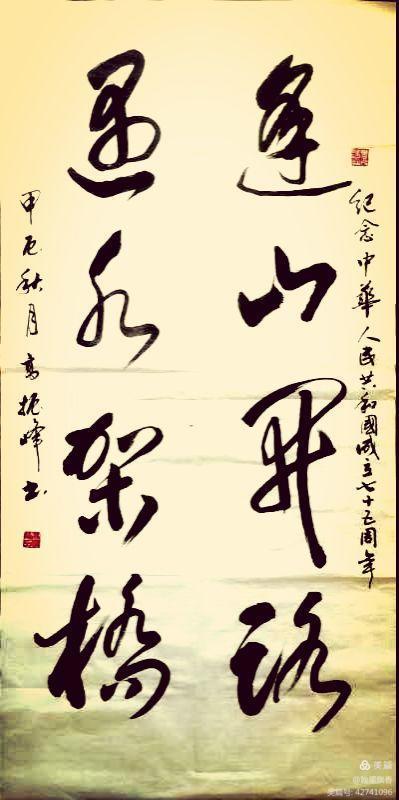 紀念中華人民共和國成立七十五周年
逢山開路
遇水架橋
甲辰秋月高振峰书
美篇
@翰墨飘香
美篇号: 42741096